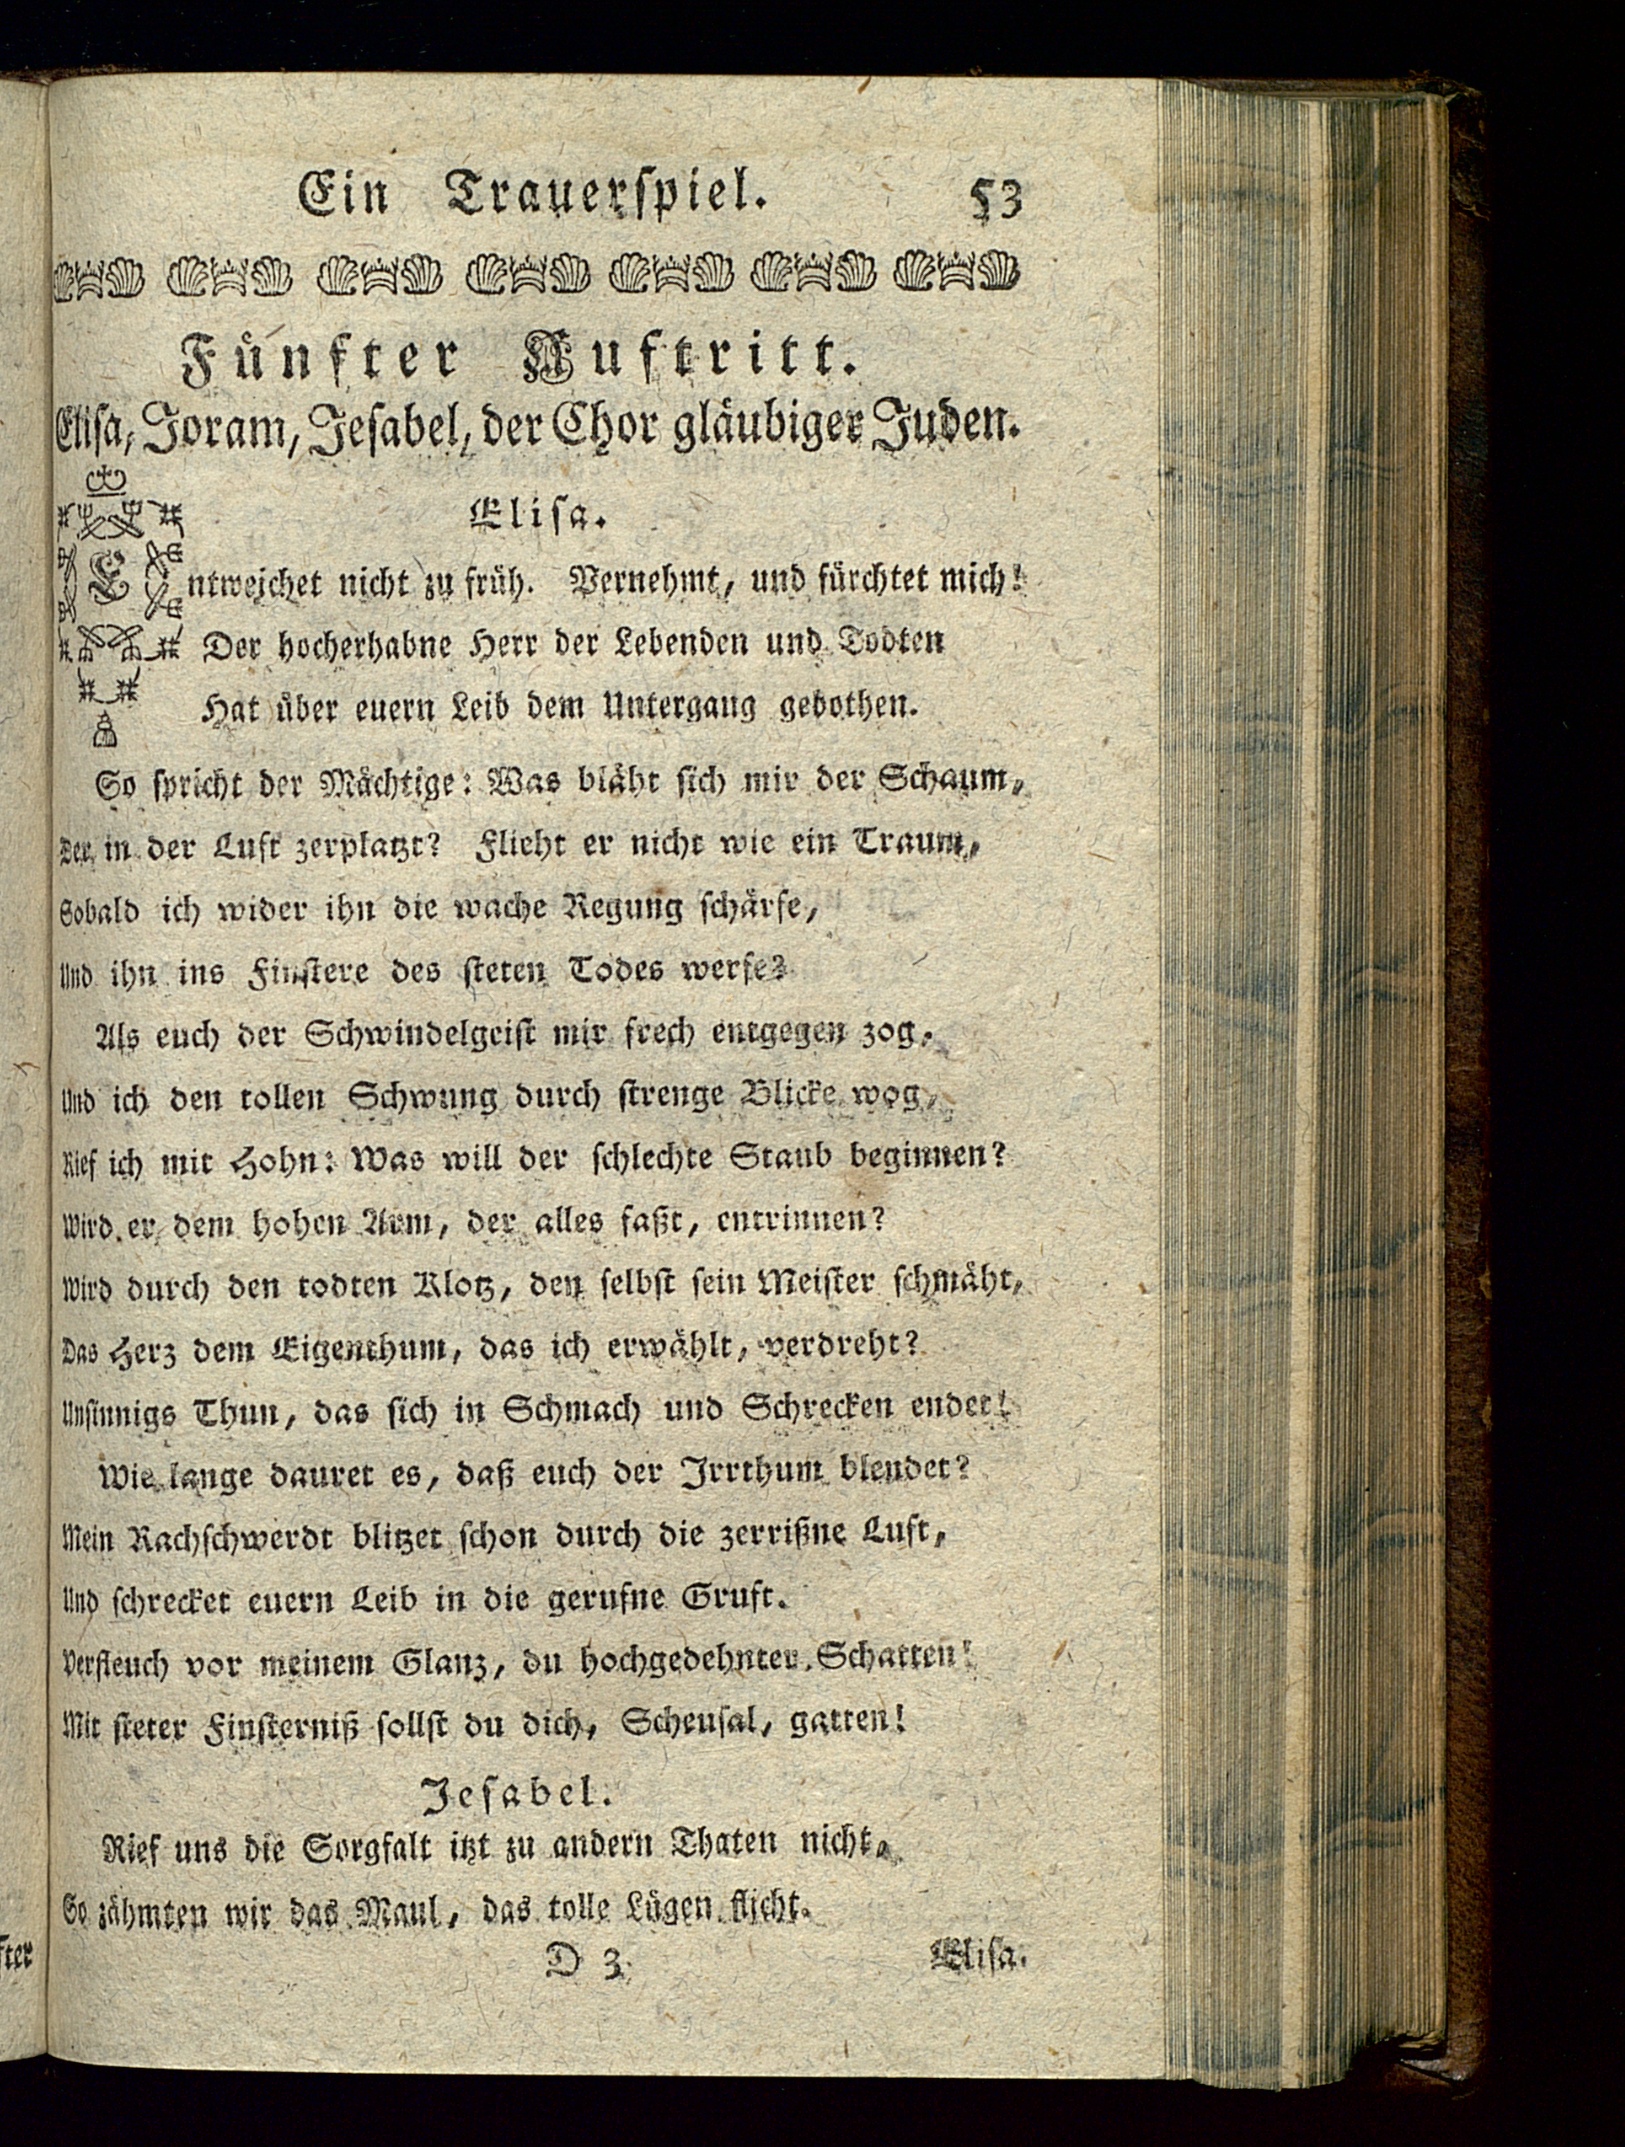 Ein Trauerſpiel. 53
Fünfter Auftritt.
Eliſa, Joram, Jeſabel, der Chor gläubiger Juden.
Eliſa.
Entweichet nicht zu früh. Vernehmt, und fürchtet mich!
Der hocherhabne Herr der Lebenden und Todten
Hat über euern Leib dem Untergang gebothen.
So ſpricht der Mächtige: Was bläht ſich mir der Schaum,
Der in der Luft zerplatzt? Flieht er nicht wie ein Traum,
Sobald ich wider ihn die wache Regung ſchärfe,
Und ihn ins Finſtere des ſteten Todes werfe?
Als euch der Schwindelgeiſt mir frech entgegen zog,
Und ich den tollen Schwung durch ſtrenge Blicke wog,
Rief ich mit Hohn: Was will der ſchlechte Staub beginnen?
Wird er dem hohen Arm, der alles faßt, entrinnen?
Wird durch den todten Klotz, den ſelbſt ſein Meiſter ſchmäht,
Das Herz dem Eigenthum, das ich erwählt, verdreht?
Unſinnigs Thun, das ſich in Schmach und Schrecken endet!
Wie lange dauret es, daß euch der Irrthum blendet?
Mein Rachſchwerdt blitzet ſchon durch die zerrißne Luft,
Und ſchrecket euern Leib in die gerufne Gruft.
Verfleuch vor meinem Glanz, du hochgedehnter Schatten!
Mit ſteter Finſterniß ſollſt du dich, Scheuſal, gatten!
Jeſabel.
Rief uns die Sorgfalt itzt zu andern Thaten nicht,
So zähmten wir das Maul, das tolle Lügen flicht.
D 3 Eliſa.